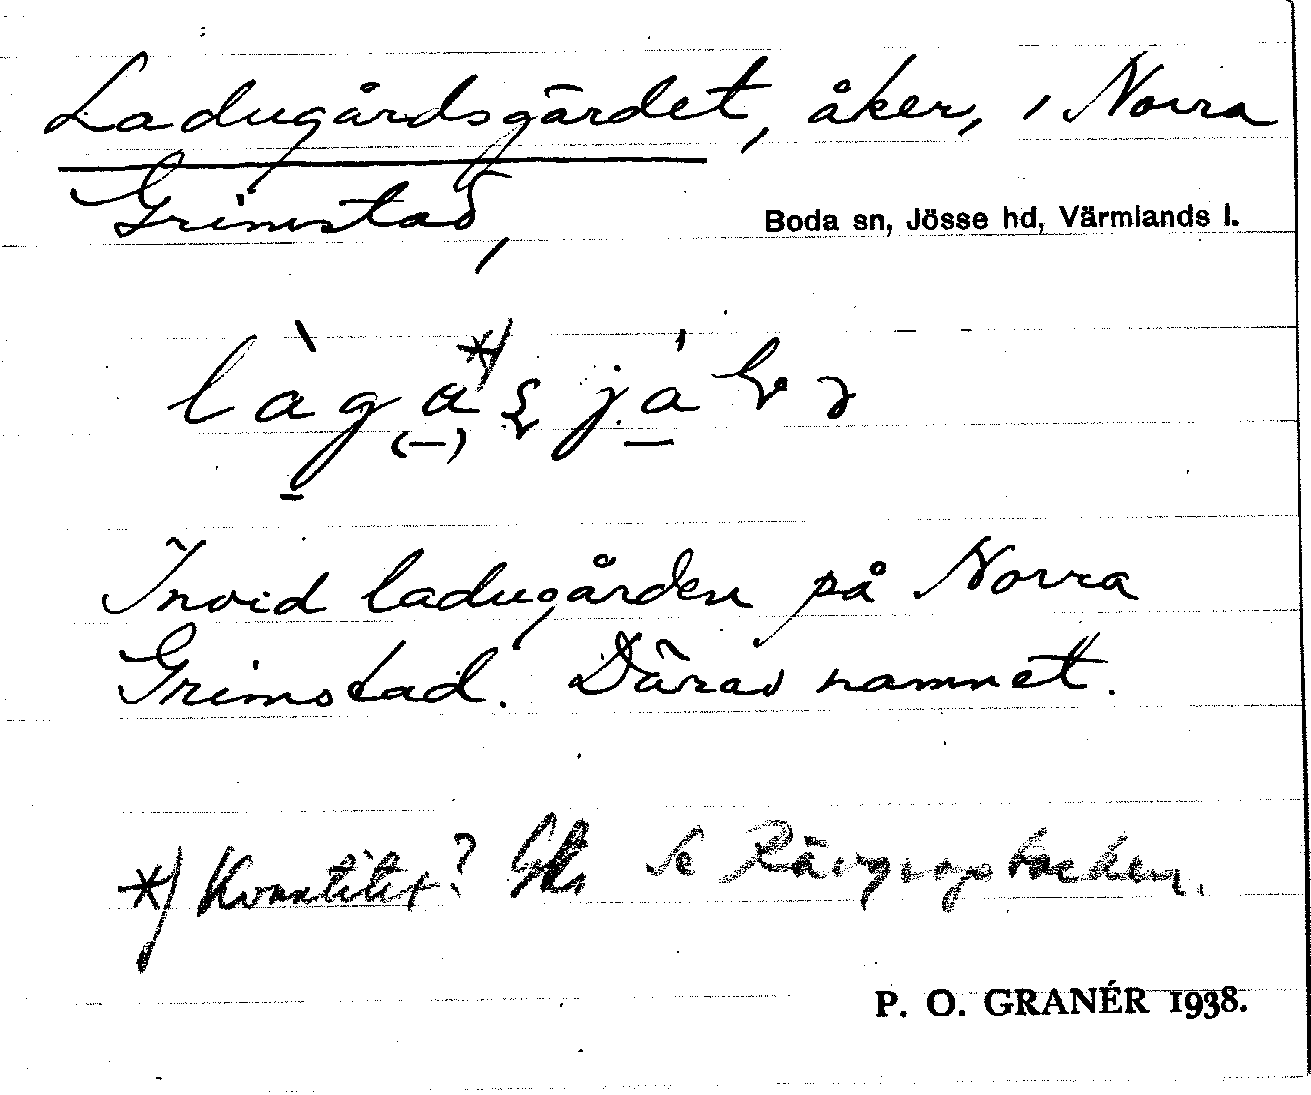 Ladugårdsgärdet, åker, i Norra
Grimstad,
Boda sn, Jösse hd, Värmlands l.
Invid ladugården på Norra
Grimstad. Därav namnet.
*) Kvantitet? Se
P. O. GRANÉR 1938.